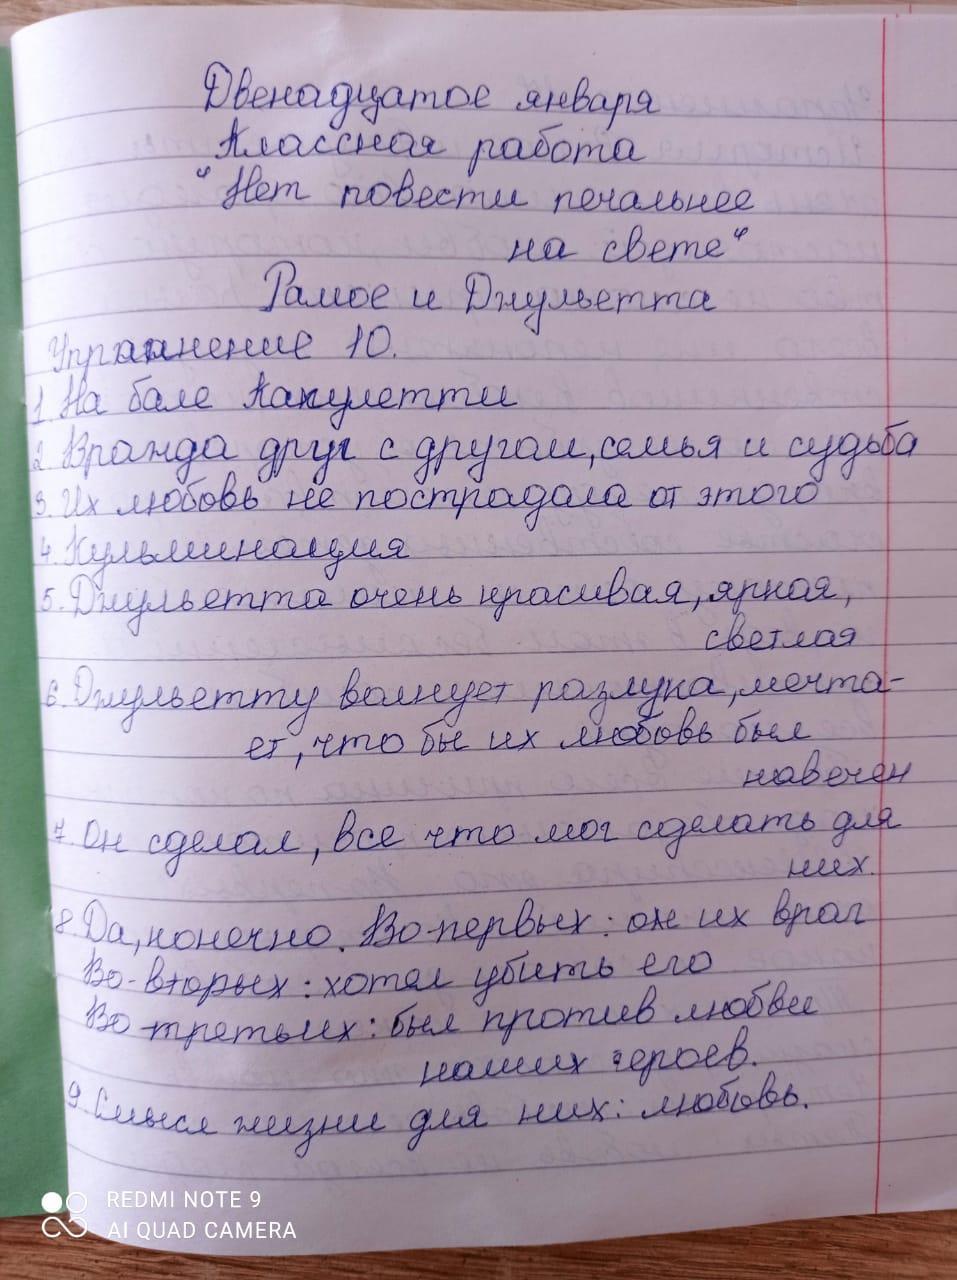 Двенадцатое января
Классная работа
"Нет повести печальнее
на свете"
Рамое и Джульетта
Упражнение 10.
1. На бале Капулетти
2. Вражда друг с другом, семья и судьба
3. Их любовь не пострадала от этого
4. Кульминация
5. Джульетта очень красивая, яркая,
светлая
6. Джульетту волнует разлука, мечта-
ет, что бы их любовь был
навечен
7. Он сделал, все что мог сделать для
них.
8. Да, конечно. Во-первых: он их враг
Во-вторых: хотел убить его
Во-третьих: был против любви
наших героев.
9. Смысл жизни для них: любовь.
REDMI NOTE 9
AI QUAD CAMERA